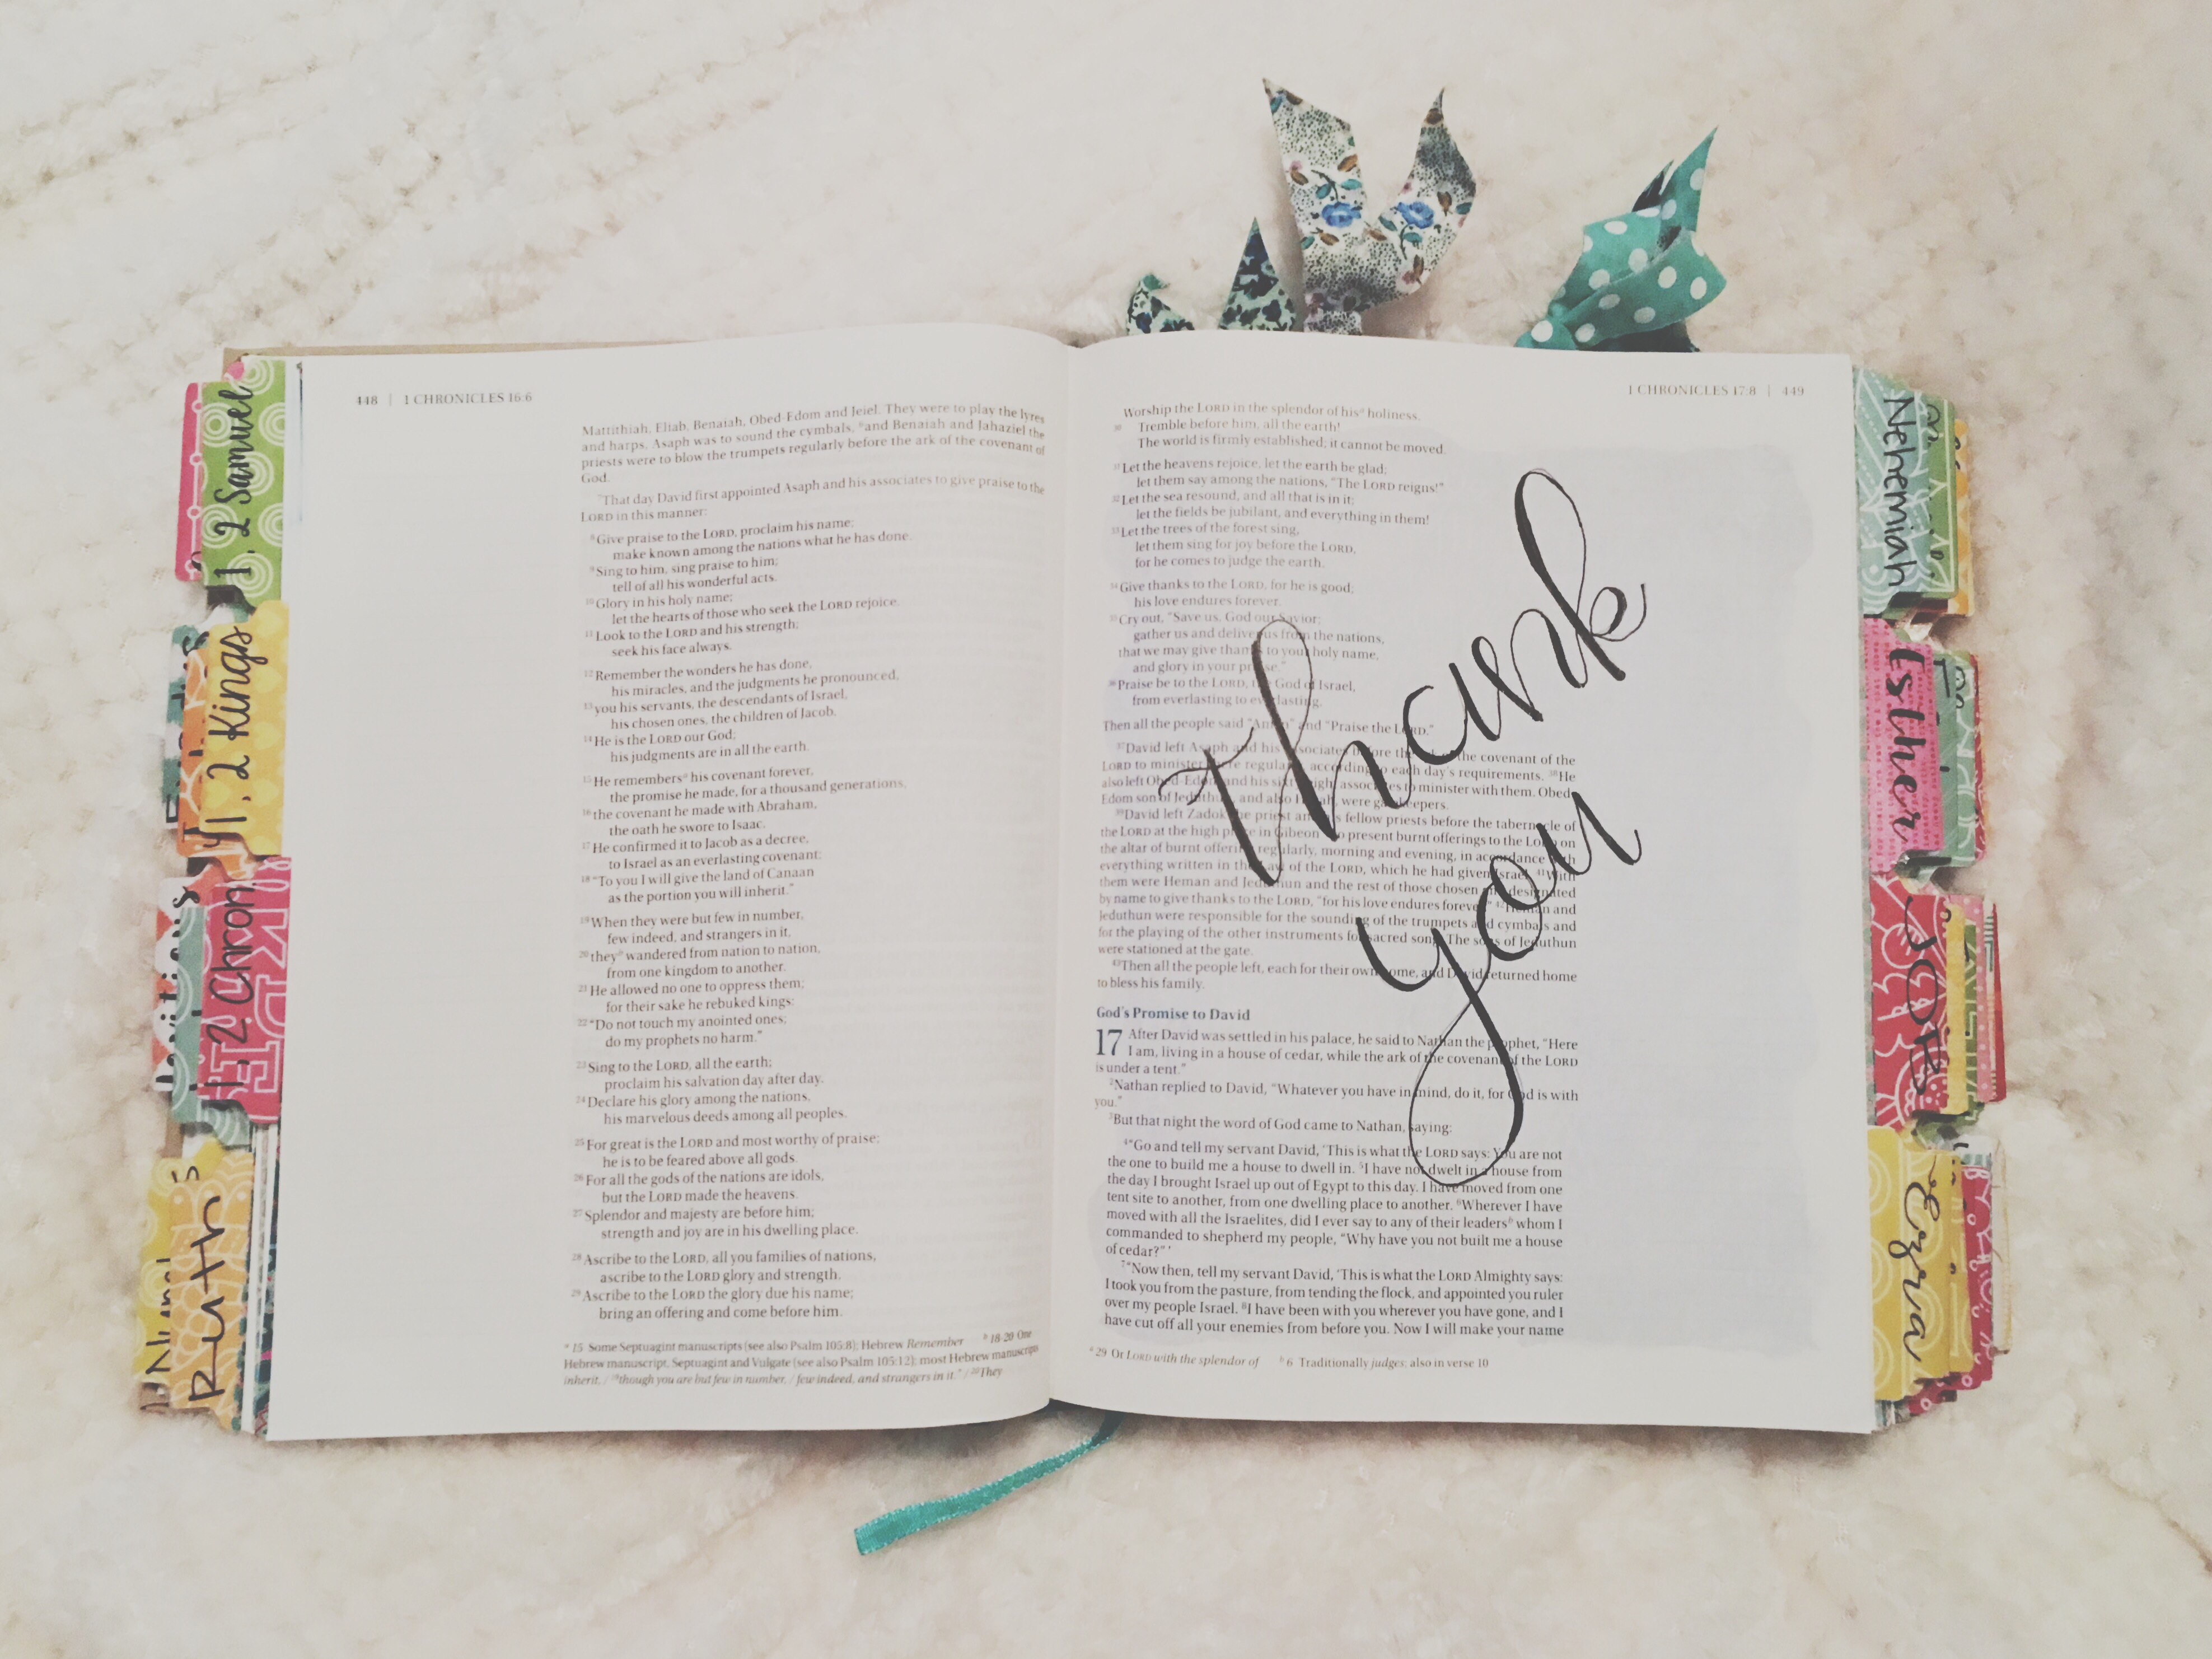 448 | 1 CHRONICLES 16:6
Mattithiah, Eliab, Benaiah, Obed-Edom and Jeiel. They were to play the lyres
and harps, Asaph was to sound the cymbals, ⁶and Benaiah and Jahaziel the
priests were to blow the trumpets regularly before the ark of the covenant of
God.
⁷That day David first appointed Asaph and his associates to give praise to the
LORD in this manner:
⁸Give praise to the LORD, proclaim his name;
make known among the nations what he has done.
⁹Sing to him, sing praise to him;
tell of all his wonderful acts.
¹⁰Glory in his holy name;
let the hearts of those who seek the LORD rejoice.
¹¹Look to the LORD and his strength;
seek his face always.
¹²Remember the wonders he has done,
his miracles, and the judgments he pronounced,
¹³you his servants, the descendants of Israel,
his chosen ones, the children of Jacob.
¹⁴He is the LORD our God;
his judgments are in all the earth.
¹⁵He remembersᵃ his covenant forever,
the promise he made, for a thousand generations,
¹⁶the covenant he made with Abraham,
the oath he swore to Isaac.
¹⁷He confirmed it to Jacob as a decree,
to Israel as an everlasting covenant:
¹⁸"To you I will give the land of Canaan
as the portion you will inherit."
¹⁹When they were but few in number,
few indeed, and strangers in it,
²⁰theyᵇ wandered from nation to nation,
from one kingdom to another.
²¹He allowed no one to oppress them;
for their sake he rebuked kings:
²²"Do not touch my anointed ones;
do my prophets no harm."
²³Sing to the LORD, all the earth;
proclaim his salvation day after day.
²⁴Declare his glory among the nations,
his marvelous deeds among all peoples.
²⁵For great is the LORD and most worthy of praise;
he is to be feared above all gods.
²⁶For all the gods of the nations are idols,
but the LORD made the heavens.
²⁷Splendor and majesty are before him;
strength and joy are in his dwelling place.
²⁸Ascribe to the LORD, all you families of nations,
ascribe to the LORD glory and strength.
²⁹Ascribe to the LORD the glory due his name;
bring an offering and come before him.
ᵃ 15 Some Septuagint manuscripts (see also Psalm 105:8); Hebrew Remember ᵇ 18-20 One
Hebrew manuscript, Septuagint and Vulgate (see also Psalm 105:12); most Hebrew manuscripts
inherit, / ¹⁹though you are but few in number, / few indeed, and strangers in it." / ²⁰They
1 CHRONICLES 17:8 | 449
Worship the LORD in the splendor of hisᵃ holiness.
³⁰ Tremble before him, all the earth!
The world is firmly established; it cannot be moved.
³¹Let the heavens rejoice, let the earth be glad;
let them say among the nations, "The LORD reigns!"
³²Let the sea resound, and all that is in it;
let the fields be jubilant, and everything in them!
³³Let the trees of the forest sing,
let them sing for joy before the LORD,
for he comes to judge the earth.
³⁴Give thanks to the LORD, for he is good;
his love endures forever.
³⁵Cry out, "Save us, God our Savior;
gather us and deliver us from the nations,
that we may give thanks to your holy name,
and glory in your praise."
³⁶Praise be to the LORD, the God of Israel,
from everlasting to everlasting.
Then all the people said "Amen" and "Praise the LORD."
³⁷David left Asaph and his associates before the ark of the covenant of the
LORD to minister there regularly, according to each day's requirements. ³⁸He
also left Obed-Edom and his sixty-eight associates to minister with them. Obed-
Edom son of Jeduthun, and also Hosah, were gatekeepers.
³⁹David left Zadok the priest and his fellow priests before the tabernacle of
the LORD at the high place in Gibeon ⁴⁰to present burnt offerings to the LORD on
the altar of burnt offering regularly, morning and evening, in accordance with
everything written in the Law of the LORD, which he had given Israel. ⁴¹With
them were Heman and Jeduthun and the rest of those chosen and designated
by name to give thanks to the LORD, "for his love endures forever." ⁴²Heman and
Jeduthun were responsible for the sounding of the trumpets and cymbals and
for the playing of the other instruments for sacred song. The sons of Jeduthun
were stationed at the gate.
⁴³Then all the people left, each for their own home, and David returned home
to bless his family.
God's Promise to David
17 After David was settled in his palace, he said to Nathan the prophet, "Here
I am, living in a house of cedar, while the ark of the covenant of the LORD
is under a tent."
²Nathan replied to David, "Whatever you have in mind, do it, for God is with
you."
³But that night the word of God came to Nathan, saying:
⁴"Go and tell my servant David, 'This is what the LORD says: You are not
the one to build me a house to dwell in. ⁵I have not dwelt in a house from
the day I brought Israel up out of Egypt to this day. I have moved from one
tent site to another, from one dwelling place to another. ⁶Wherever I have
moved with all the Israelites, did I ever say to any of their leadersᵇ whom I
commanded to shepherd my people, "Why have you not built me a house
of cedar?" '
⁷"Now then, tell my servant David, 'This is what the LORD Almighty says:
I took you from the pasture, from tending the flock, and appointed you ruler
over my people Israel. ⁸I have been with you wherever you have gone, and I
have cut off all your enemies from before you. Now I will make your name
ᵃ 29 Or LORD with the splendor of ᵇ 6 Traditionally judges; also in verse 10
Thank
you
1, 2 Samuel
1, 2 Kings
1, 2 Chron.
Ruth
Nehemiah
Esther
JOB
Ezra